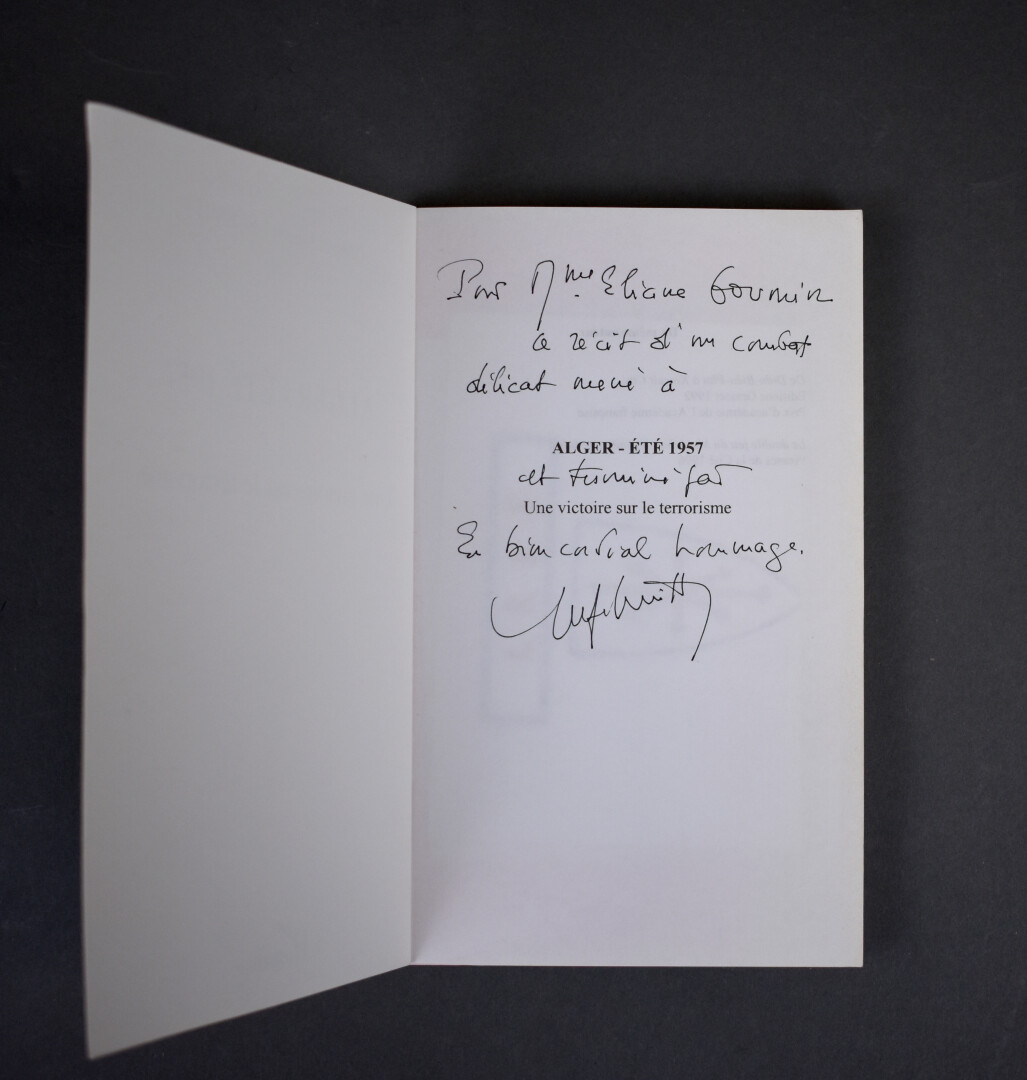 Pour Mme. Eliane
ce récit d'un combat
délicat mené à
ALGER - ÉTÉ 1957
et terminé par
Une victoire sur le terrorisme
En bien cordial hommage.